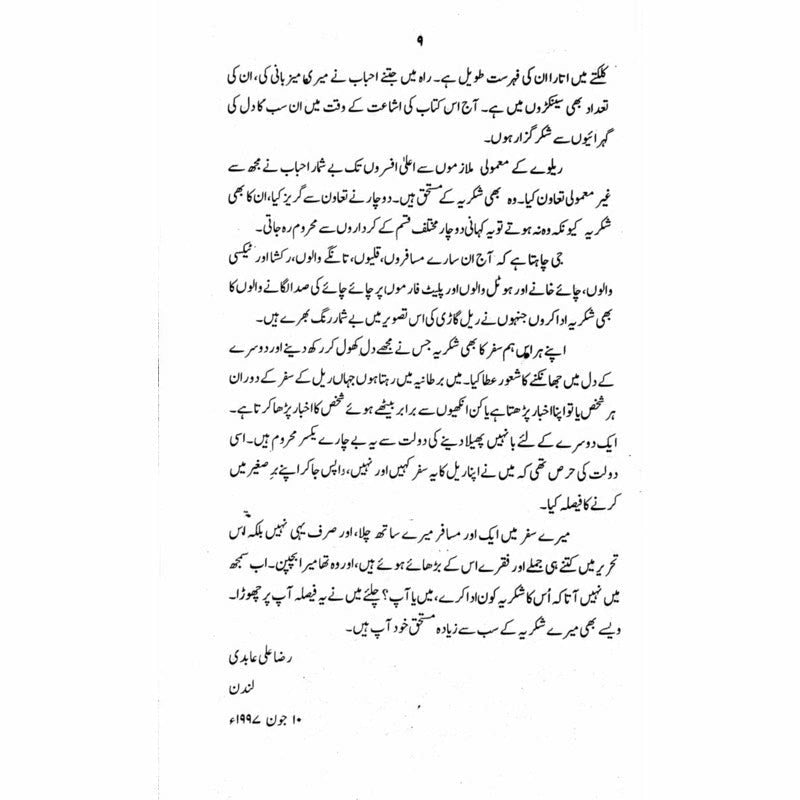 ۹
کلکتے میں اتارا ان کی فہرست طویل ہے۔ راہ میں جتنے احباب نے میری میزبانی کی، ان کی
تعداد بھی سینکڑوں میں ہے۔ آج اس کتاب کی اشاعت کے وقت میں ان سب کا دل کی
گہرائیوں سے شکر گزار ہوں۔
ریلوے کے معمولی ملازموں سے اعلیٰ افسروں تک بے شمار احباب نے مجھ سے
غیر معمولی تعاون کیا۔ وہ بھی شکریہ کے مستحق ہیں۔ دو چار نے تعاون سے گریز کیا، ان کا بھی
شکریہ کیونکہ وہ نہ ہوتے تو یہ کہانی دو چار مختلف قسم کے کرداروں سے محروم رہ جاتی۔
جی چاہتا ہے کہ آج ان سارے مسافروں، قلیوں، تانگے والوں، رکشا اور ٹیکسی
والوں، چائے خانے اور ہوٹل والوں اور پلیٹ فارموں پر چائے چائے کی صدا لگانے والوں کا
بھی شکریہ ادا کروں جنہوں نے ریل گاڑی کی اس تصویر میں بے شمار رنگ بھرے ہیں۔
اپنے ہر اس ہم سفر کا بھی شکریہ جس نے مجھے دل کھول کر رکھ دینے اور دوسرے
کے دل میں جھانکنے کا شعور عطا کیا۔ میں برطانیہ میں رہتا ہوں جہاں ریل کے سفر کے دوران
ہر شخص یا تو اپنا اخبار پڑھتا ہے یا کن انکھیوں سے برابر بیٹھے ہوئے شخص کا اخبار پڑھا کرتا ہے۔
ایک دوسرے کے لئے بانہیں پھیلا دینے کی دولت سے یہ بے چارے یکسر محروم ہیں۔ اسی
دولت کی حرص تھی کہ میں نے اپنا ریل کا یہ سفر کہیں اور نہیں، واپس جا کر اپنے بر صغیر میں
کرنے کا فیصلہ کیا۔
میرے سفر میں ایک اور مسافر میرے ساتھ چلا، اور صرف یہی نہیں بلکہ اس
تحریر میں کتنے ہی جملے اور فقرے اس کے بڑھائے ہوئے ہیں، اور وہ تھا میرا بچپن۔ اب سمجھ
میں نہیں آتا کہ اُس کا شکریہ کون ادا کرے، میں یا آپ؟ چلئے میں نے یہ فیصلہ آپ پر چھوڑا۔
ویسے بھی میرے شکریہ کے سب سے زیادہ مستحق خود آپ ہیں۔
رضا علی عابدی
لندن
۱۰ جون ۱۹۹۷ء